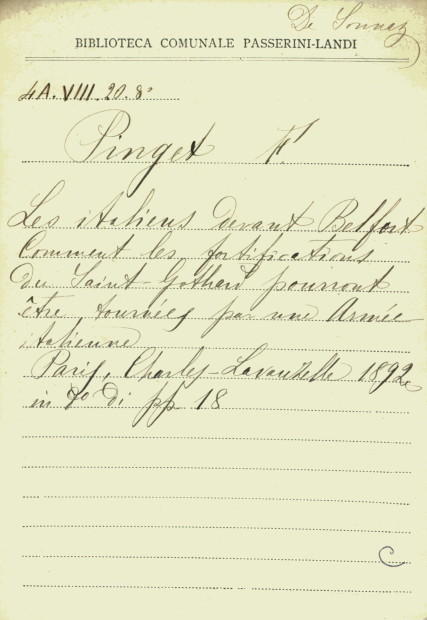 De Sonnaz
BIBLIOTECA COMUNALE PASSERINI-LANDI
4A.VIII.20.8°
Pinget F.
Les italiens devant Belfort
Comment les fortifications
du Saint-Gothard pourront
être tournées par une Armée
italienne
Paris, Charles-Lavauzelle 1892
in 8° di pp 18
C